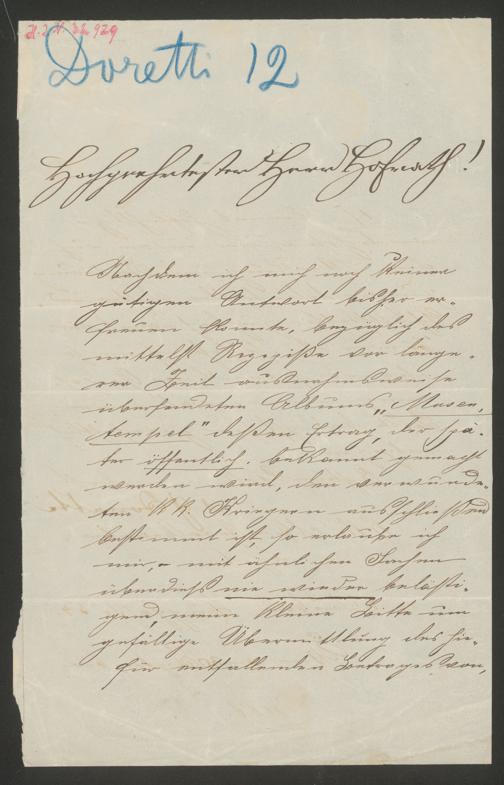 H. I. N. 36929
Doretti 12
Hochgeehrtester Herr Hofrath!
Nachdem ich mich noch keiner
gütigen Antwort bisher er-
freuen konnte, bezüglich des
mittelst Rezepiße vor länge-
rer Zeit ausnahmsweise
übersendeten Albums „Musen-
tempel" deßen Ertrag, der spä-
ter öffentlich bekannt gemacht
werden wird, den verwunde-
ten KK. Kriegern ausschließend
bestimmt ist, so erlaube ich
mir, – mit ähnlichen Sachen
überdieß nie wieder belästi-
gend, meine kleine Bitte um
gefällige Übermittlung des hie-
für entfallenden Betrages von,